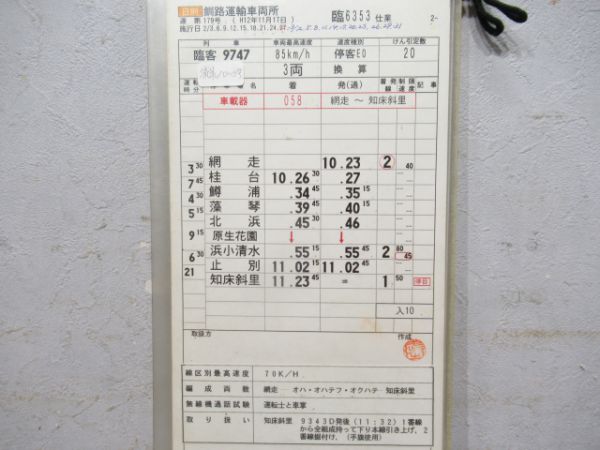 釧路運輸車両所 臨6353仕業 2-
運 第179号、(H12年11月17日)
施行日2/3.6.9.12.15.18.21.24.
列車 車両最高速度 速度種別 けん引定数
臨客 9747 85km/h 停客E0 20
3両 換算
運転時分 着 発(通) 着発線 制限速度 記事
車載器 058 網走 〜 知床斜里
網走 10.23 2 40
3 30 桂台 10.26 30 .27
7 45 鱒浦 .34 45 .35 15
4 30 藻琴 .39 45 .40 15
5 15 北浜 .45 30 .46
原生花園 ↓ ↓
9 15 浜小清水 .55 15 .55 45 2 80 45
6 30 止別 11.02 15 11.02 45
21 知床斜里 11.23 45 = 1 50
入10
取扱方 作成
線区別最高速度 70K/H
編成両数 網走──オハ・オハテフ・オクハテ──知床斜里
無線機通話試験 運転士と車掌
取り扱い 知床斜里 9343D発後(11:32)1番線
から全組成持って下り本線引き上げ、2
番線据付け。(手旗使用)